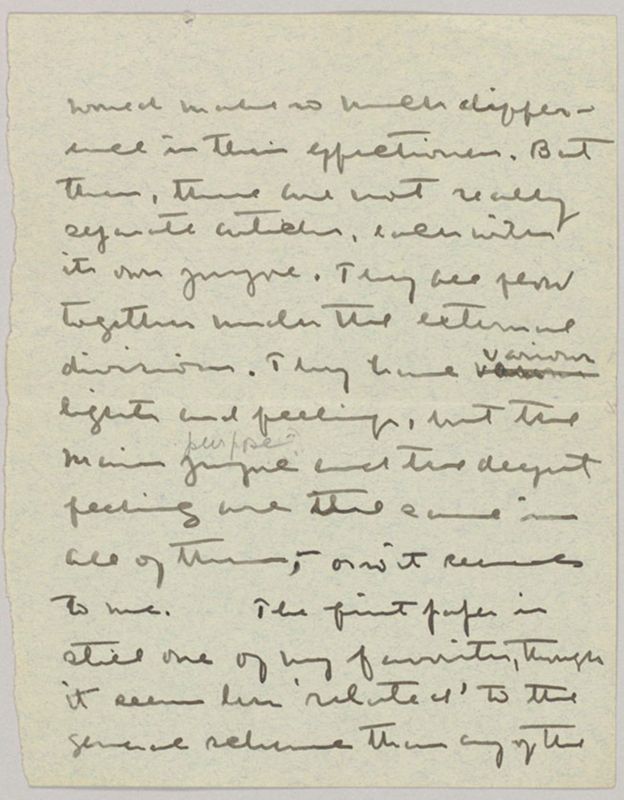 would make so much differ-
ence in their effectiveness. But
then, these are not really
separate articles, each with
its own purpose. They all flow
together under the external
divisions. They have various
lights and feelings, but the
purpose?
main purpose and the deepest
feeling are the same in
all of them, – or so it seems
to me. The first paper is
still one of my favorites, though
it seems less 'related' to the
general scheme than any of the